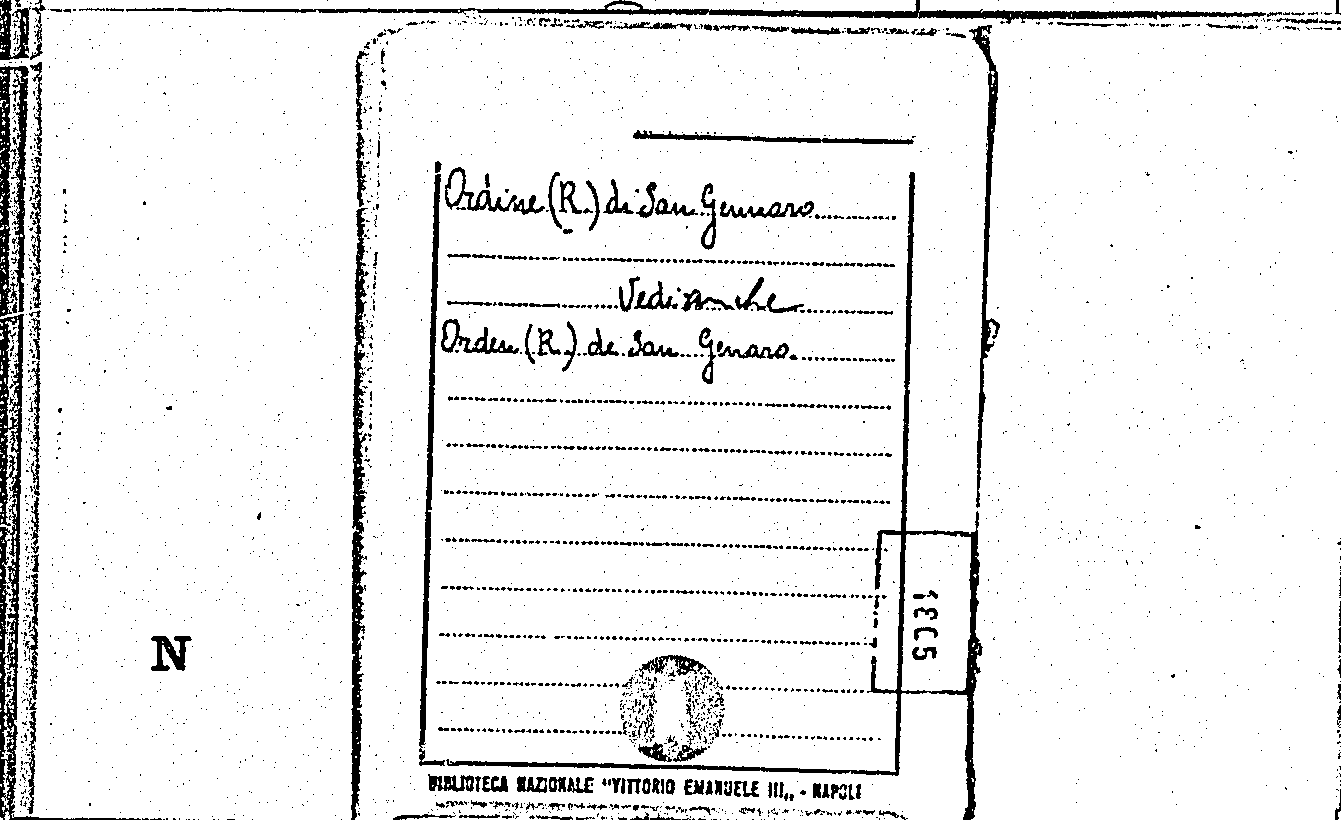 Ordine (R.) di San Gennaro
Vedi anche
Orden (R.) de San Genaro.
1805
N
BIBLIOTECA NAZIONALE "VITTORIO EMANUELE III„ - NAPOLI